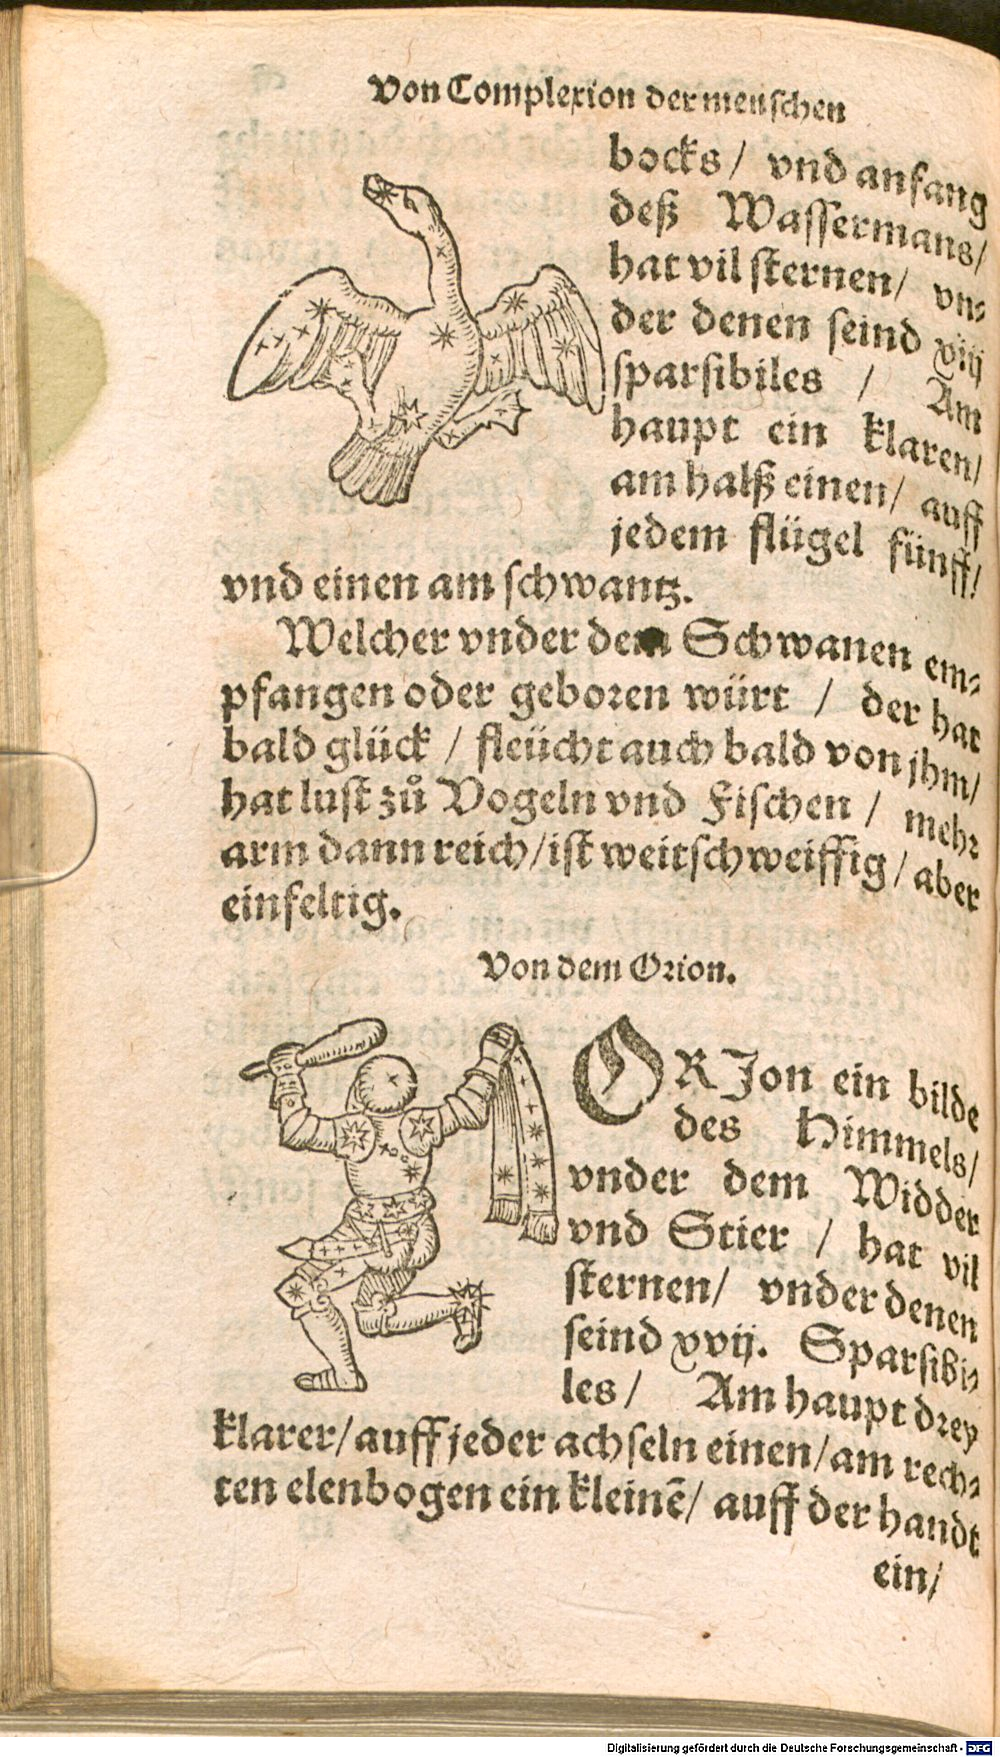 Von Complexion der menschen
bocks/ vnd anfang
deß Wassermans/
hat vil sternen/ vn⸗
der denen seind xiij
sparsibiles / Am
haupt ein klaren/
am halß einen/ auff
jedem flügel fünff/
vnd einen am schwantz.
Welcher vnder dem Schwanen em⸗
pfangen oder geboren würt / der hat
bald glück / fleücht auch bald von jhm/
hat lust zů Vogeln vnd Fischen / mehr
arm dann reich/ ist weitschweiffig/ aber
einfeltig.
Von dem Orion.
ORJon ein bilde
des Himmels/
vnder dem Widder
vnd Stier / hat vil
sternen/ vnder denen
seind xvij. Sparsibi⸗
les/ Am haupt drey
klarer/ auff jeder achseln einen/ am rech⸗
ten elenbogen ein kleinē/ auff der handt
ein/
Digitalisierung gefördert durch die Deutsche Forschungsgemeinschaft - DFG